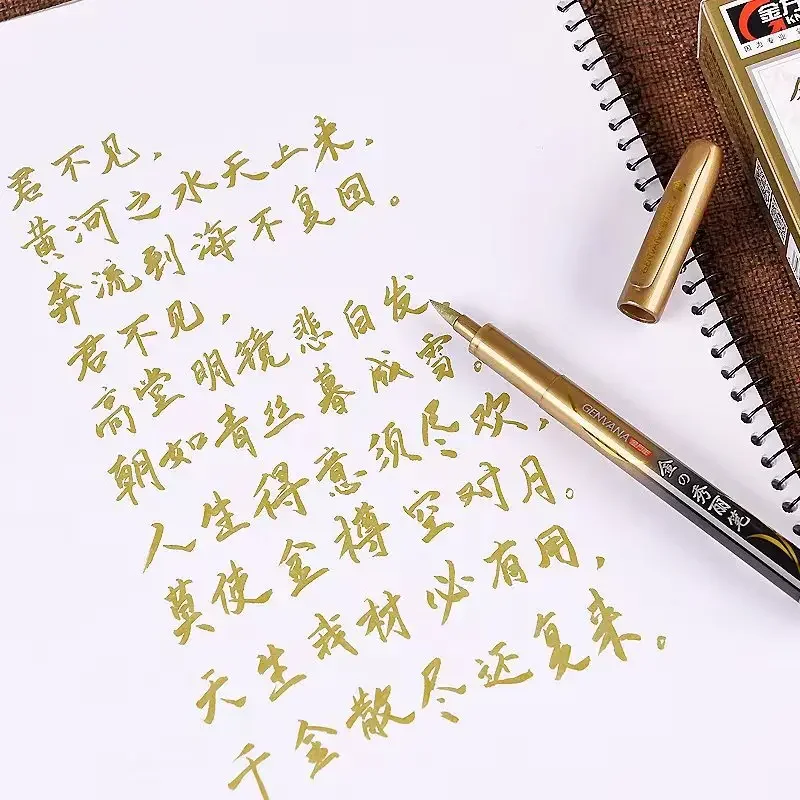 君不见，
黄河之水天上来，
奔流到海不复回。
君不见，
高堂明镜悲白发
朝如青丝暮成雪。
人生得意须尽欢，
莫使金樽空对月。
天生我材必有用，
千金散尽还复来。
GENVANA
GENVANA
金の秀丽笔
金万
因为专业